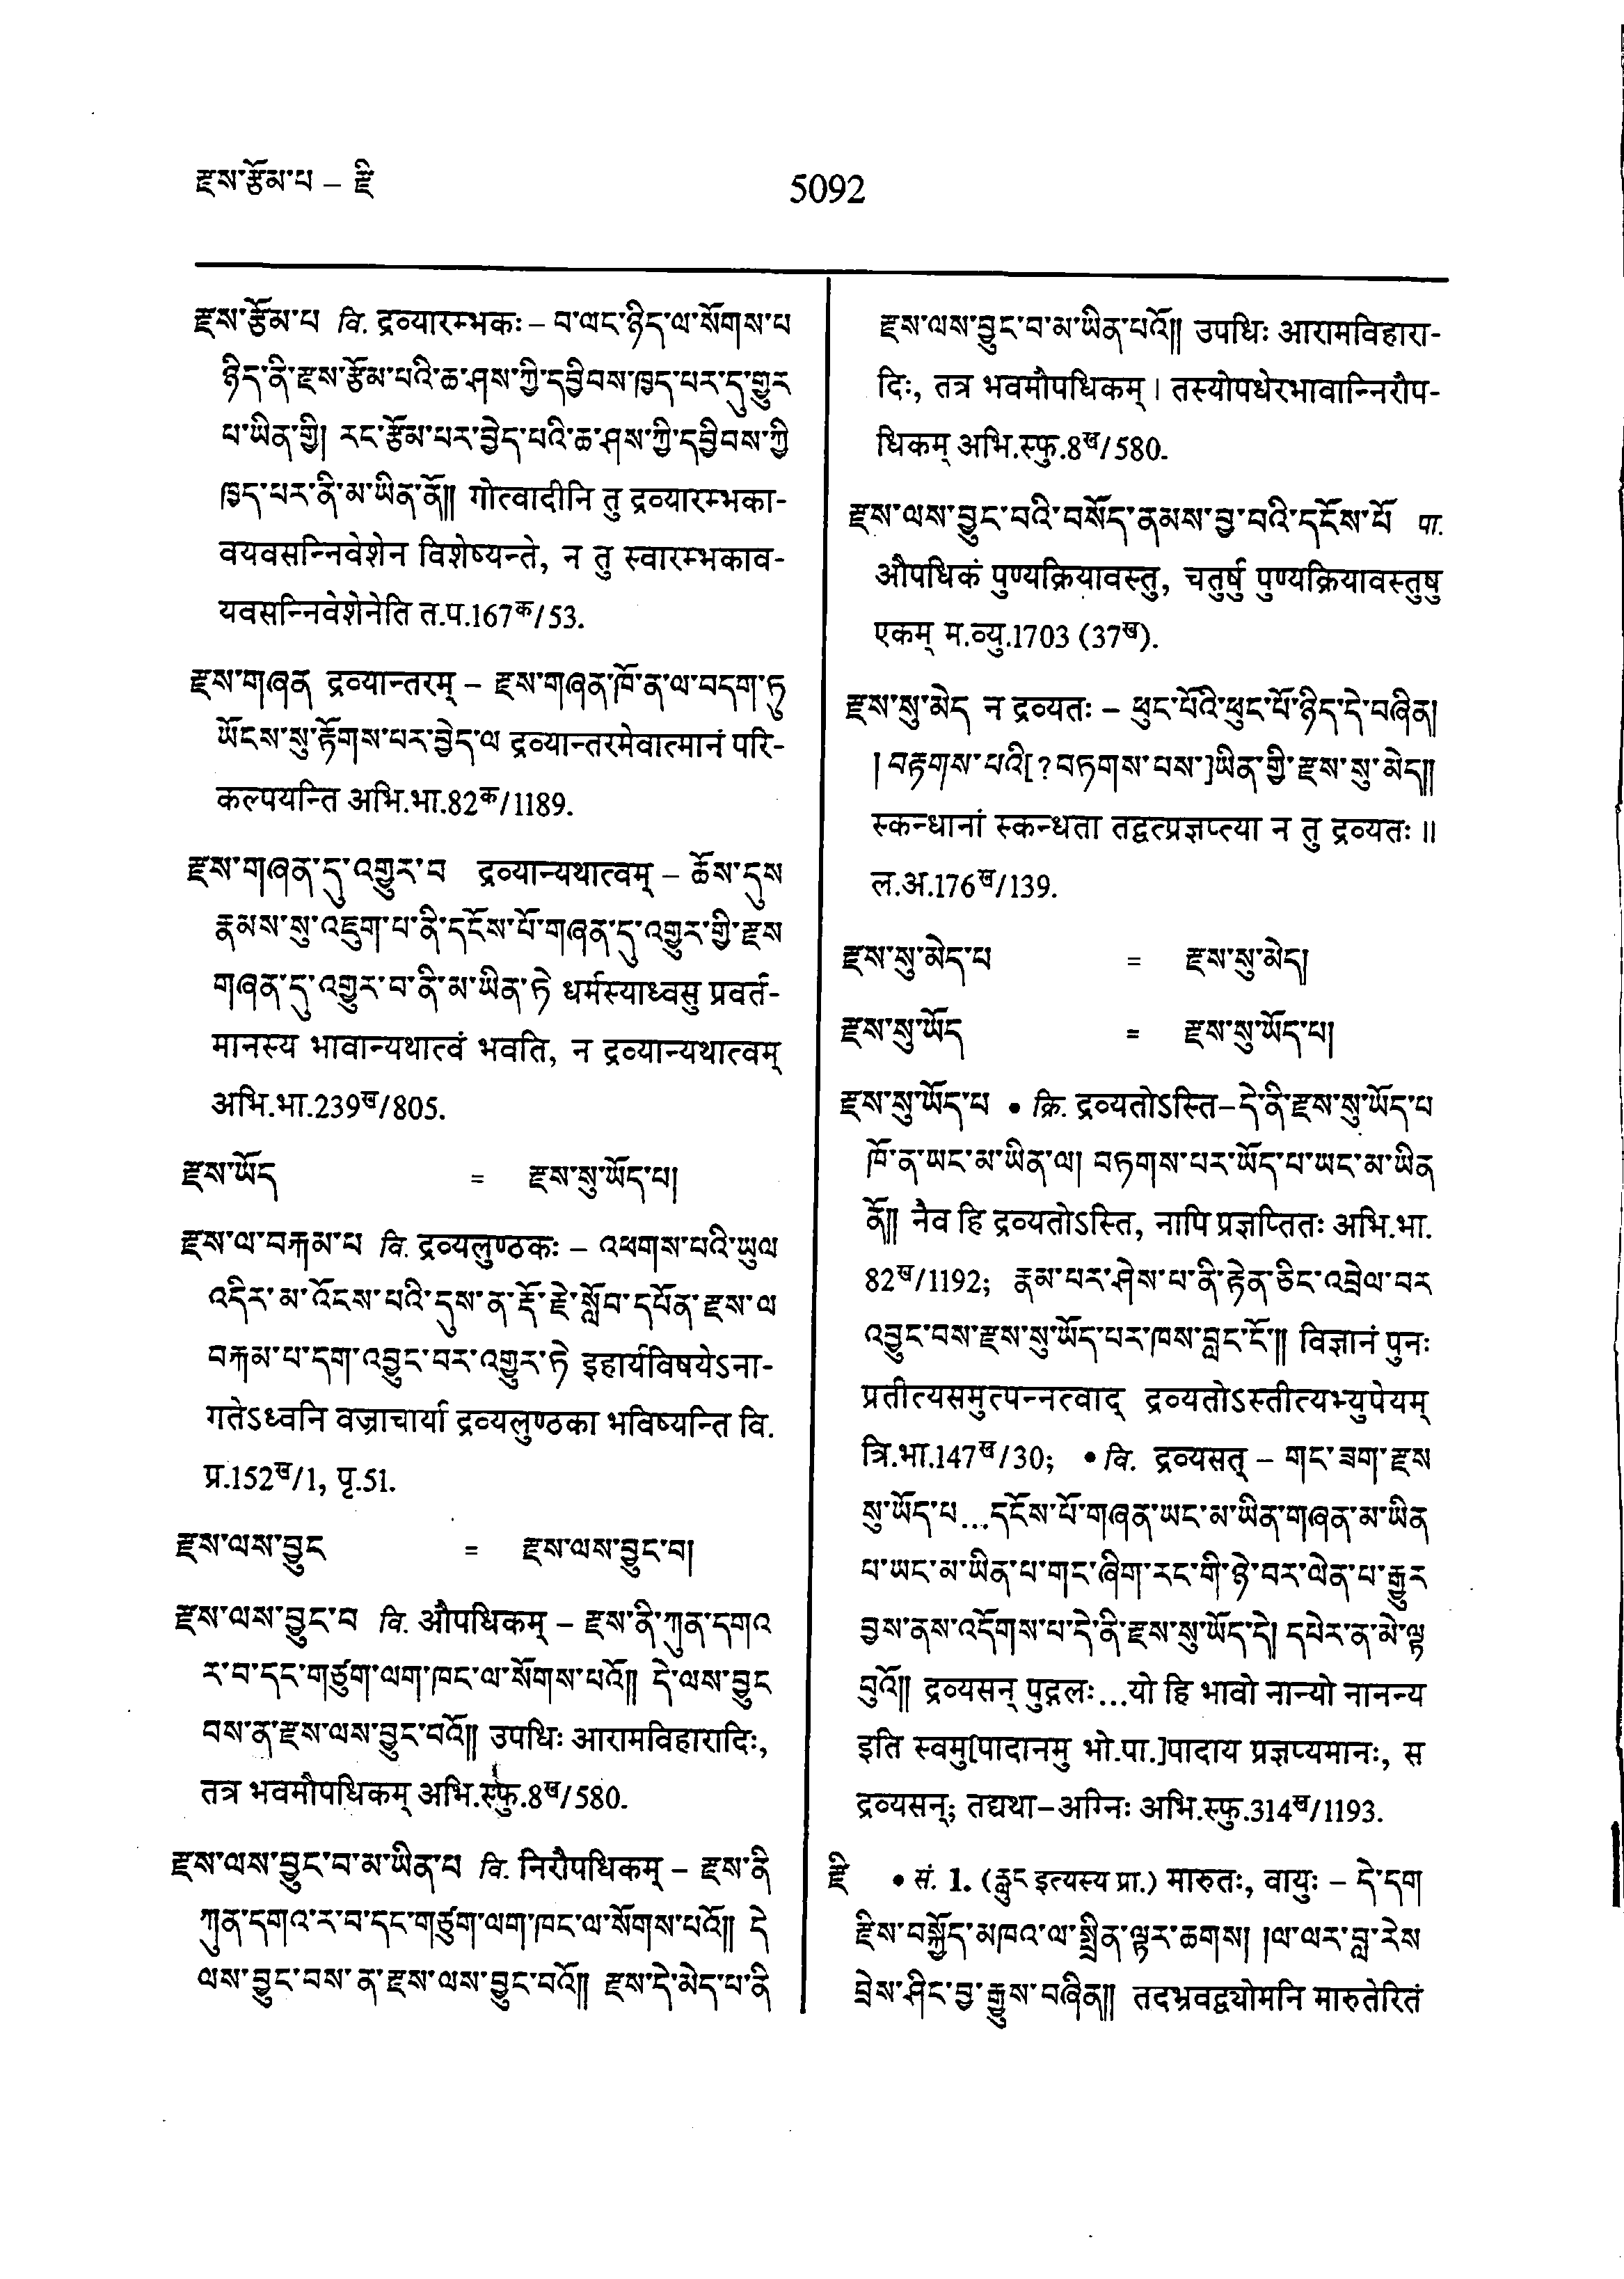 རྫས་རྩོམ་པ – རྫི
5092
རྫས་རྩོམ་པ वि. द्रव्यारम्भकः – བ་ལང་ཉིད་ལ་སོགས་པ
ཉིད་ནི་རྫས་རྩོམ་པའི་ཆ་ཤས་ཀྱི་དབྱིབས་ཁྱད་པར་དུ་གྱུར
པ་ཡིན་གྱི། རང་རྩོམ་པར་བྱེད་པའི་ཆ་ཤས་ཀྱི་དབྱིབས་ཀྱི
ཁྱད་པར་ནི་མ་ཡིན་ནོ།། गोत्वादीनि तु द्रव्यारम्भका-
वयवसन्निवेशेन विशेष्यन्ते, न तु स्वारम्भकाव-
यवसन्निवेशेनेति त.प.167क/53.
རྫས་གཞན द्रव्यान्तरम् – རྫས་གཞན་ཁོ་ན་ལ་བདག་ཏུ
ཡོངས་སུ་རྟོགས་པར་བྱེད་ལ द्रव्यान्तरमेवात्मानं परि-
कल्पयन्ति अभि.भा.82क/1189.
རྫས་གཞན་དུ་འགྱུར་བ द्रव्यान्यथात्वम् – ཆོས་དུས
རྣམས་སུ་འཇུག་པ་ནི་དངོས་པོ་གཞན་དུ་འགྱུར་གྱི་རྫས
གཞན་དུ་འགྱུར་བ་ནི་མ་ཡིན་ཏེ धर्मस्याध्वसु प्रवर्त-
मानस्य भावान्यथात्वं भवति, न द्रव्यान्यथात्वम्
अभि.भा.239ख/805.
རྫས་ཡོད = རྫས་སུ་ཡོད་པ།
རྫས་ལ་བརྐམ་པ वि. द्रव्यलुण्ठकः – འཕགས་པའི་ཡུལ
འདིར་མ་འོངས་པའི་དུས་ན་རྡོ་རྗེ་སློབ་དཔོན་རྫས་ལ
བརྐམ་པ་དག་འབྱུང་བར་འགྱུར་ཏེ इहार्यविषयेऽना-
गतेऽध्वनि वज्राचार्या द्रव्यलुण्ठका भविष्यन्ति वि.
प्र.152ख/1, पृ.51.
རྫས་ལས་བྱུང = རྫས་ལས་བྱུང་བ།
རྫས་ལས་བྱུང་བ वि. औपधिकम् – རྫས་ནི་ཀུན་དགའ
ར་བ་དང་གཙུག་ལག་ཁང་ལ་སོགས་པའོ།། དེ་ལས་བྱུང
བས་ན་རྫས་ལས་བྱུང་བའོ།། उपधिः आरामविहारादिः,
तत्र भवमौपधिकम् अभि.स्फु.8ख/580.
རྫས་ལས་བྱུང་བ་མ་ཡིན་པ वि. निरौपधिकम् – རྫས་ནི
ཀུན་དགའ་ར་བ་དང་གཙུག་ལག་ཁང་ལ་སོགས་པའོ།། དེ
ལས་བྱུང་བས་ན་རྫས་ལས་བྱུང་བའོ།། རྫས་དེ་མེད་པ་ནི
རྫས་ལས་བྱུང་བ་མ་ཡིན་པའོ།། उपधिः आरामविहारा-
दिः, तत्र भवमौपधिकम् । तस्योपधेरभावान्निरौप-
धिकम् अभि.स्फु.8ख/580.
རྫས་ལས་བྱུང་བའི་བསོད་ནམས་བྱ་བའི་དངོས་པོ पा.
औपधिकं पुण्यक्रियावस्तु, चतुर्षु पुण्यक्रियावस्तुषु
एकम् म.व्यु.1703 (37ख).
རྫས་སུ་མེད न द्रव्यतः – ཕུང་པོའི་ཕུང་པོ་ཉིད་དེ་བཞིན།
།བརྟགས་པའི[?བཏགས་པས་]ཡིན་གྱི་རྫས་སུ་མེད།།
स्कन्धानां स्कन्धता तद्वत्प्रज्ञप्त्या न तु द्रव्यतः ॥
ल.अ.176ख/139.
རྫས་སུ་མེད་པ = རྫས་སུ་མེད།
རྫས་སུ་ཡོད = རྫས་སུ་ཡོད་པ།
རྫས་སུ་ཡོད་པ • क्रि. द्रव्यतोऽस्ति–དེ་ནི་རྫས་སུ་ཡོད་པ
ཁོ་ན་ཡང་མ་ཡིན་ལ། བཏགས་པར་ཡོད་པ་ཡང་མ་ཡིན
ནོ།། नैव हि द्रव्यतोऽस्ति, नापि प्रज्ञप्तितः अभि.भा.
82ख/1192; རྣམ་པར་ཤེས་པ་ནི་རྟེན་ཅིང་འབྲེལ་བར
འབྱུང་བས་རྫས་སུ་ཡོད་པར་ཁས་བླང་ངོ་།། विज्ञानं पुनः
प्रतीत्यसमुत्पन्नत्वाद् द्रव्यतोऽस्तीत्यभ्युपेयम्
त्रि.भा.147ख/30; • वि. द्रव्यसत् – གང་ཟག་རྫས
སུ་ཡོད་པ...དངོས་པོ་གཞན་ཡང་མ་ཡིན་གཞན་མ་ཡིན
པ་ཡང་མ་ཡིན་པ་གང་ཞིག་རང་གི་ཉེ་བར་ལེན་པ་རྒྱུར
བྱས་ནས་འདོགས་པ་དེ་ནི་རྫས་སུ་ཡོད་དེ། དཔེར་ན་མེ་ལྟ
བུའོ།། द्रव्यसन् पुद्गलः...यो हि भावो नान्यो नानन्य
इति स्वमु[पादानमु भो.पा.]पादाय प्रज्ञप्यमानः, स
द्रव्यसन्; तद्यथा–अग्निः अभि.स्फु.314ख/1193.
རྫི • सं. 1. (རླུང इत्यस्य प्रा.) मारुतः, वायुः – དེ་དག
རྫིས་བསྐྱོད་མཁའ་ལ་སྤྲིན་ལྟར་ཆགས། །ལ་ལར་བླ་རེས
བྲེས་ཤིང་བྱ་རྒྱུས་བཞིན།། तदभ्रवद्व्योमनि मारुतेरितं